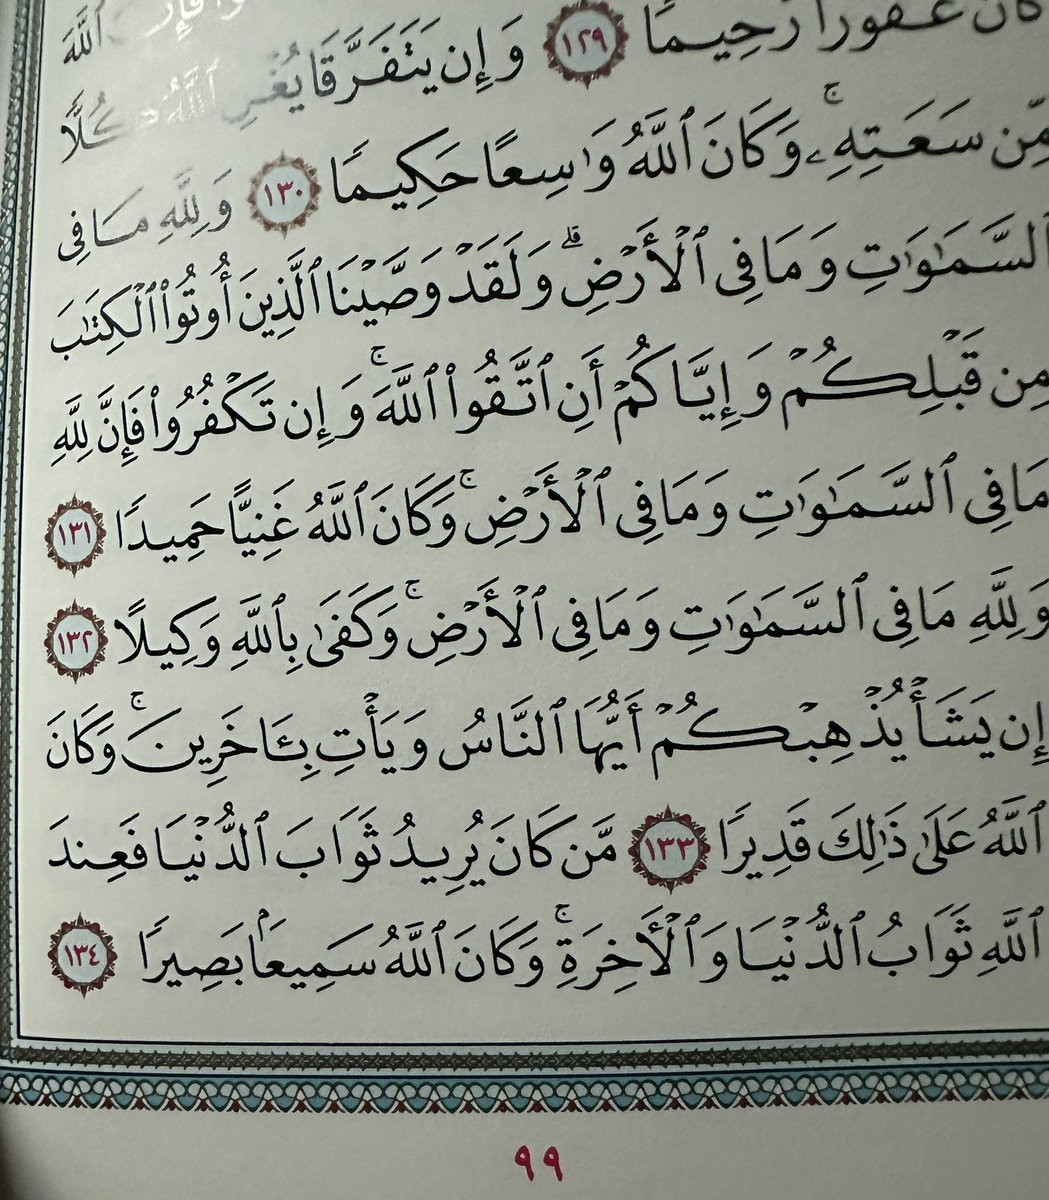 ٱللَّهَ
كَانَ غَفُورًا رَّحِيمًا ١٢٩ وَإِن يَتَفَرَّقَا يُغْنِ ٱللَّهُ كُلًّا
مِّن سَعَتِهِۦۚ وَكَانَ ٱللَّهُ وَٰسِعًا حَكِيمًا ١٣٠ وَلِلَّهِ مَا فِى
ٱلسَّمَـٰوَٰتِ وَمَا فِى ٱلْأَرْضِۗ وَلَقَدْ وَصَّيْنَا ٱلَّذِينَ أُوتُوا۟ ٱلْكِتَـٰبَ
مِن قَبْلِكُمْ وَإِيَّاكُمْ أَنِ ٱتَّقُوا۟ ٱللَّهَۚ وَإِن تَكْفُرُوا۟ فَإِنَّ لِلَّهِ
مَا فِى ٱلسَّمَـٰوَٰتِ وَمَا فِى ٱلْأَرْضِۚ وَكَانَ ٱللَّهُ غَنِيًّا حَمِيدًا ١٣١
وَلِلَّهِ مَا فِى ٱلسَّمَـٰوَٰتِ وَمَا فِى ٱلْأَرْضِۚ وَكَفَىٰ بِٱللَّهِ وَكِيلًا ١٣٢
إِن يَشَأْ يُذْهِبْكُمْ أَيُّهَا ٱلنَّاسُ وَيَأْتِ بِـَٔاخَرِينَۚ وَكَانَ
ٱللَّهُ عَلَىٰ ذَٰلِكَ قَدِيرًا ١٣٣ مَّن كَانَ يُرِيدُ ثَوَابَ ٱلدُّنْيَا فَعِندَ
ٱللَّهِ ثَوَابُ ٱلدُّنْيَا وَٱلْـَٔاخِرَةِۚ وَكَانَ ٱللَّهُ سَمِيعًۢا بَصِيرًا ١٣٤
٩٩